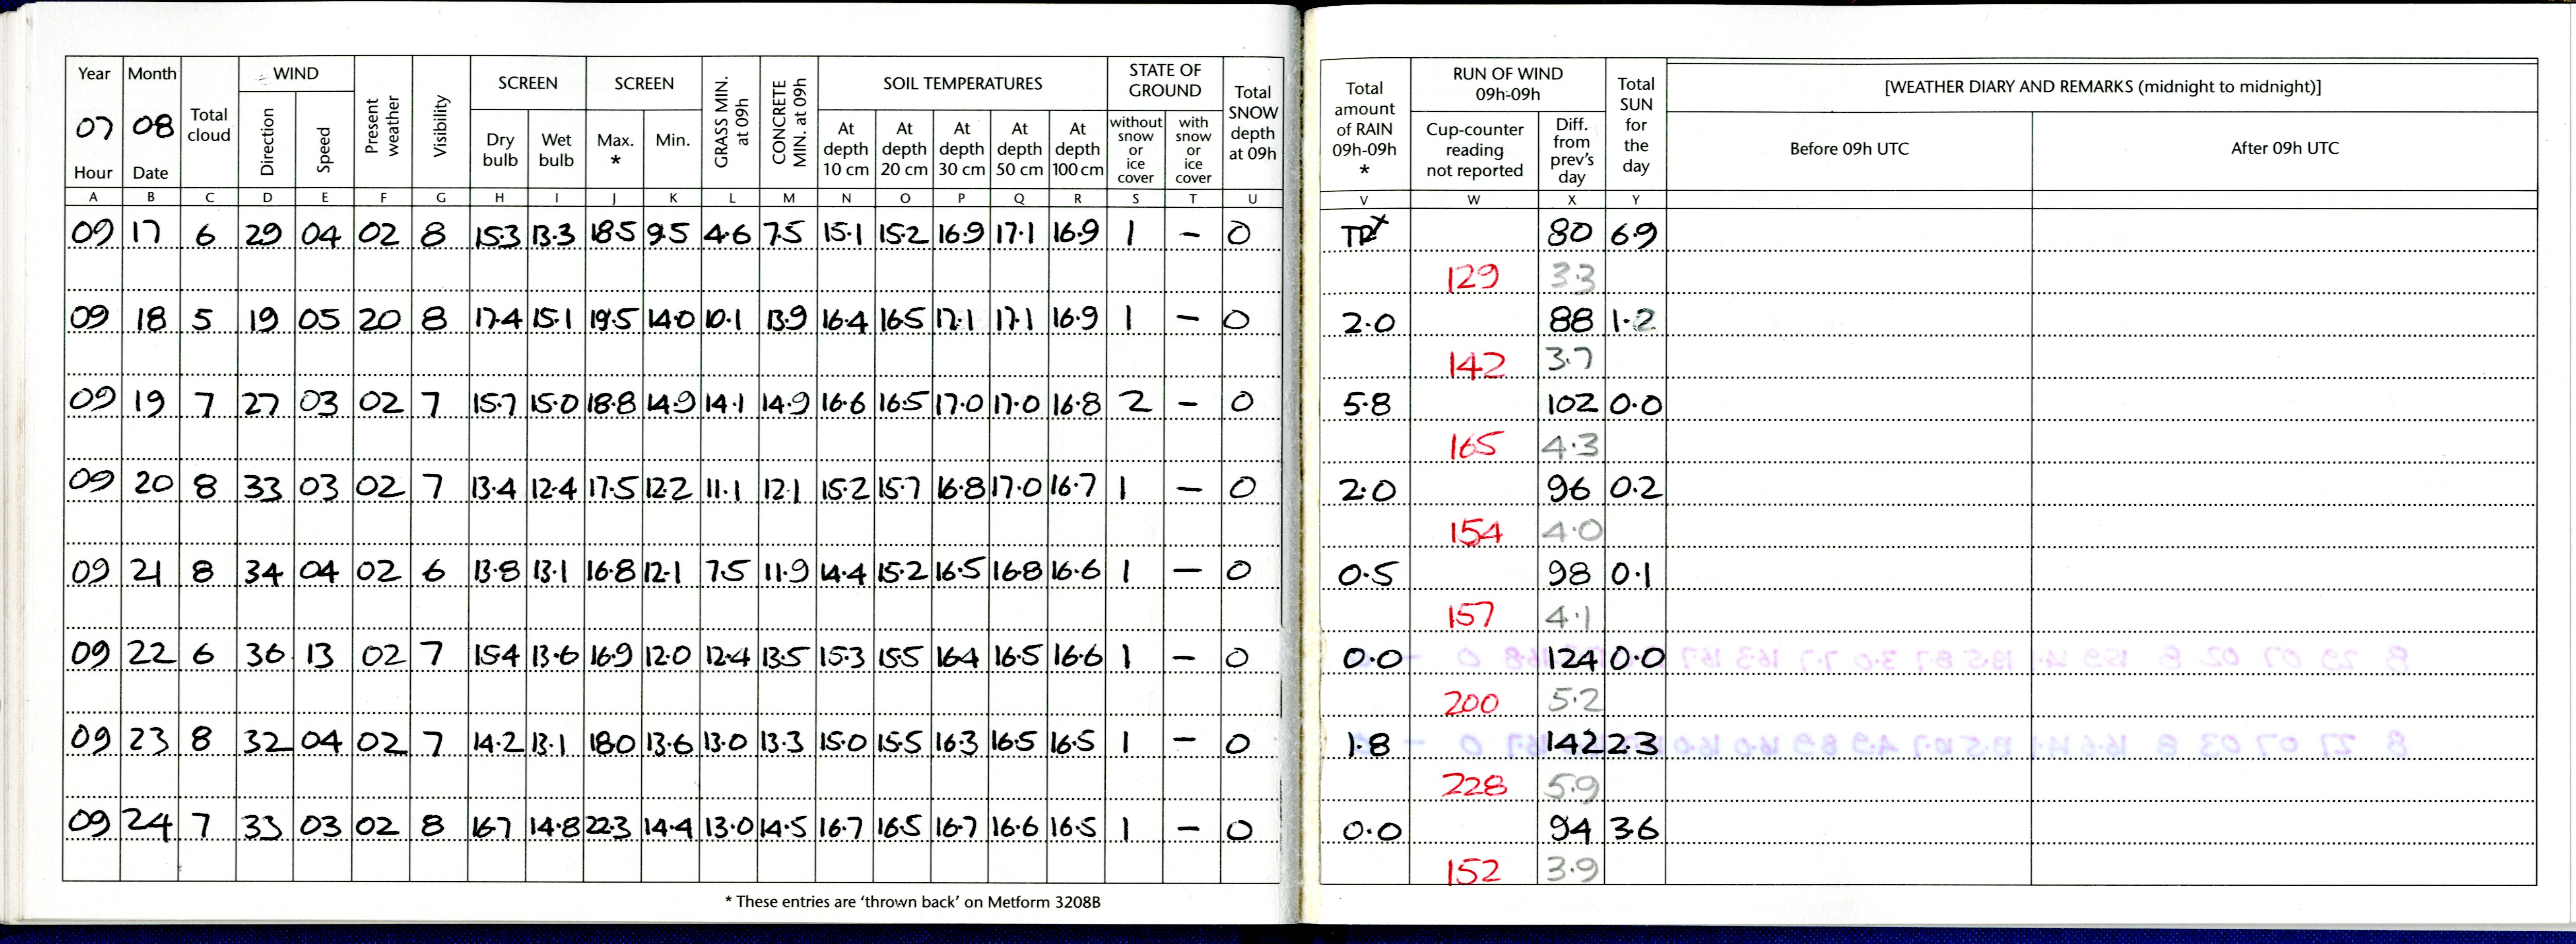 Year Month WIND SCREEN SCREEN GRASS MIN. at 09h CONCRETE MIN. at 09h SOIL TEMPERATURES STATE OF GROUND Total SNOW depth at 09h Total amount of RAIN 09h-09h * RUN OF WIND 09h-09h Total SUN for the day [WEATHER DIARY AND REMARKS (midnight to midnight)]
07 08 Total cloud Direction Speed Present weather Visibility Dry bulb Wet bulb Max. * Min. At depth 10 cm At depth 20 cm At depth 30 cm At depth 50 cm At depth 100 cm without snow or ice cover with snow or ice cover Cup-counter reading not reported Diff. from prev's day Before 09h UTC After 09h UTC
Hour Date
A B C D E F G H I J K L M N O P Q R S T U V W X Y
09 17 6 29 04 02 8 15.3 13.3 18.5 9.5 4.6 7.5 15.1 15.2 16.9 17.1 16.9 1 – 0 80 6.9
129 3.3
09 18 5 19 05 20 8 17.4 15.1 19.5 14.0 10.1 13.9 16.4 16.5 17.1 17.1 16.9 1 – 0 2.0 88 1.2
142 3.7
09 19 7 27 03 02 7 15.7 15.0 18.8 14.9 14.1 14.9 16.6 16.5 17.0 17.0 16.8 2 – 0 5.8 102 0.0
165 4.3
09 20 8 33 03 02 7 13.4 12.4 17.5 12.2 11.1 12.1 15.2 15.7 16.8 17.0 16.7 1 – 0 2.0 96 0.2
154 4.0
09 21 8 34 04 02 6 13.8 13.1 16.8 12.1 7.5 11.9 14.4 15.2 16.5 16.8 16.6 1 – 0 0.5 98 0.1
157 4.1
09 22 6 36 13 02 7 15.4 13.6 16.9 12.0 12.4 13.5 15.3 15.5 16.4 16.5 16.6 1 – 0 0.0 124 0.0
200 5.2
09 23 8 32 04 02 7 14.2 13.1 18.0 13.6 13.0 13.3 15.0 15.5 16.3 16.5 16.5 1 – 0 1.8 142 2.3
228 5.9
09 24 7 33 03 02 8 16.7 14.8 22.3 14.4 13.0 14.5 16.7 16.5 16.7 16.6 16.5 1 – 0 0.0 94 3.6
152 3.9
* These entries are 'thrown back' on Metform 3208B